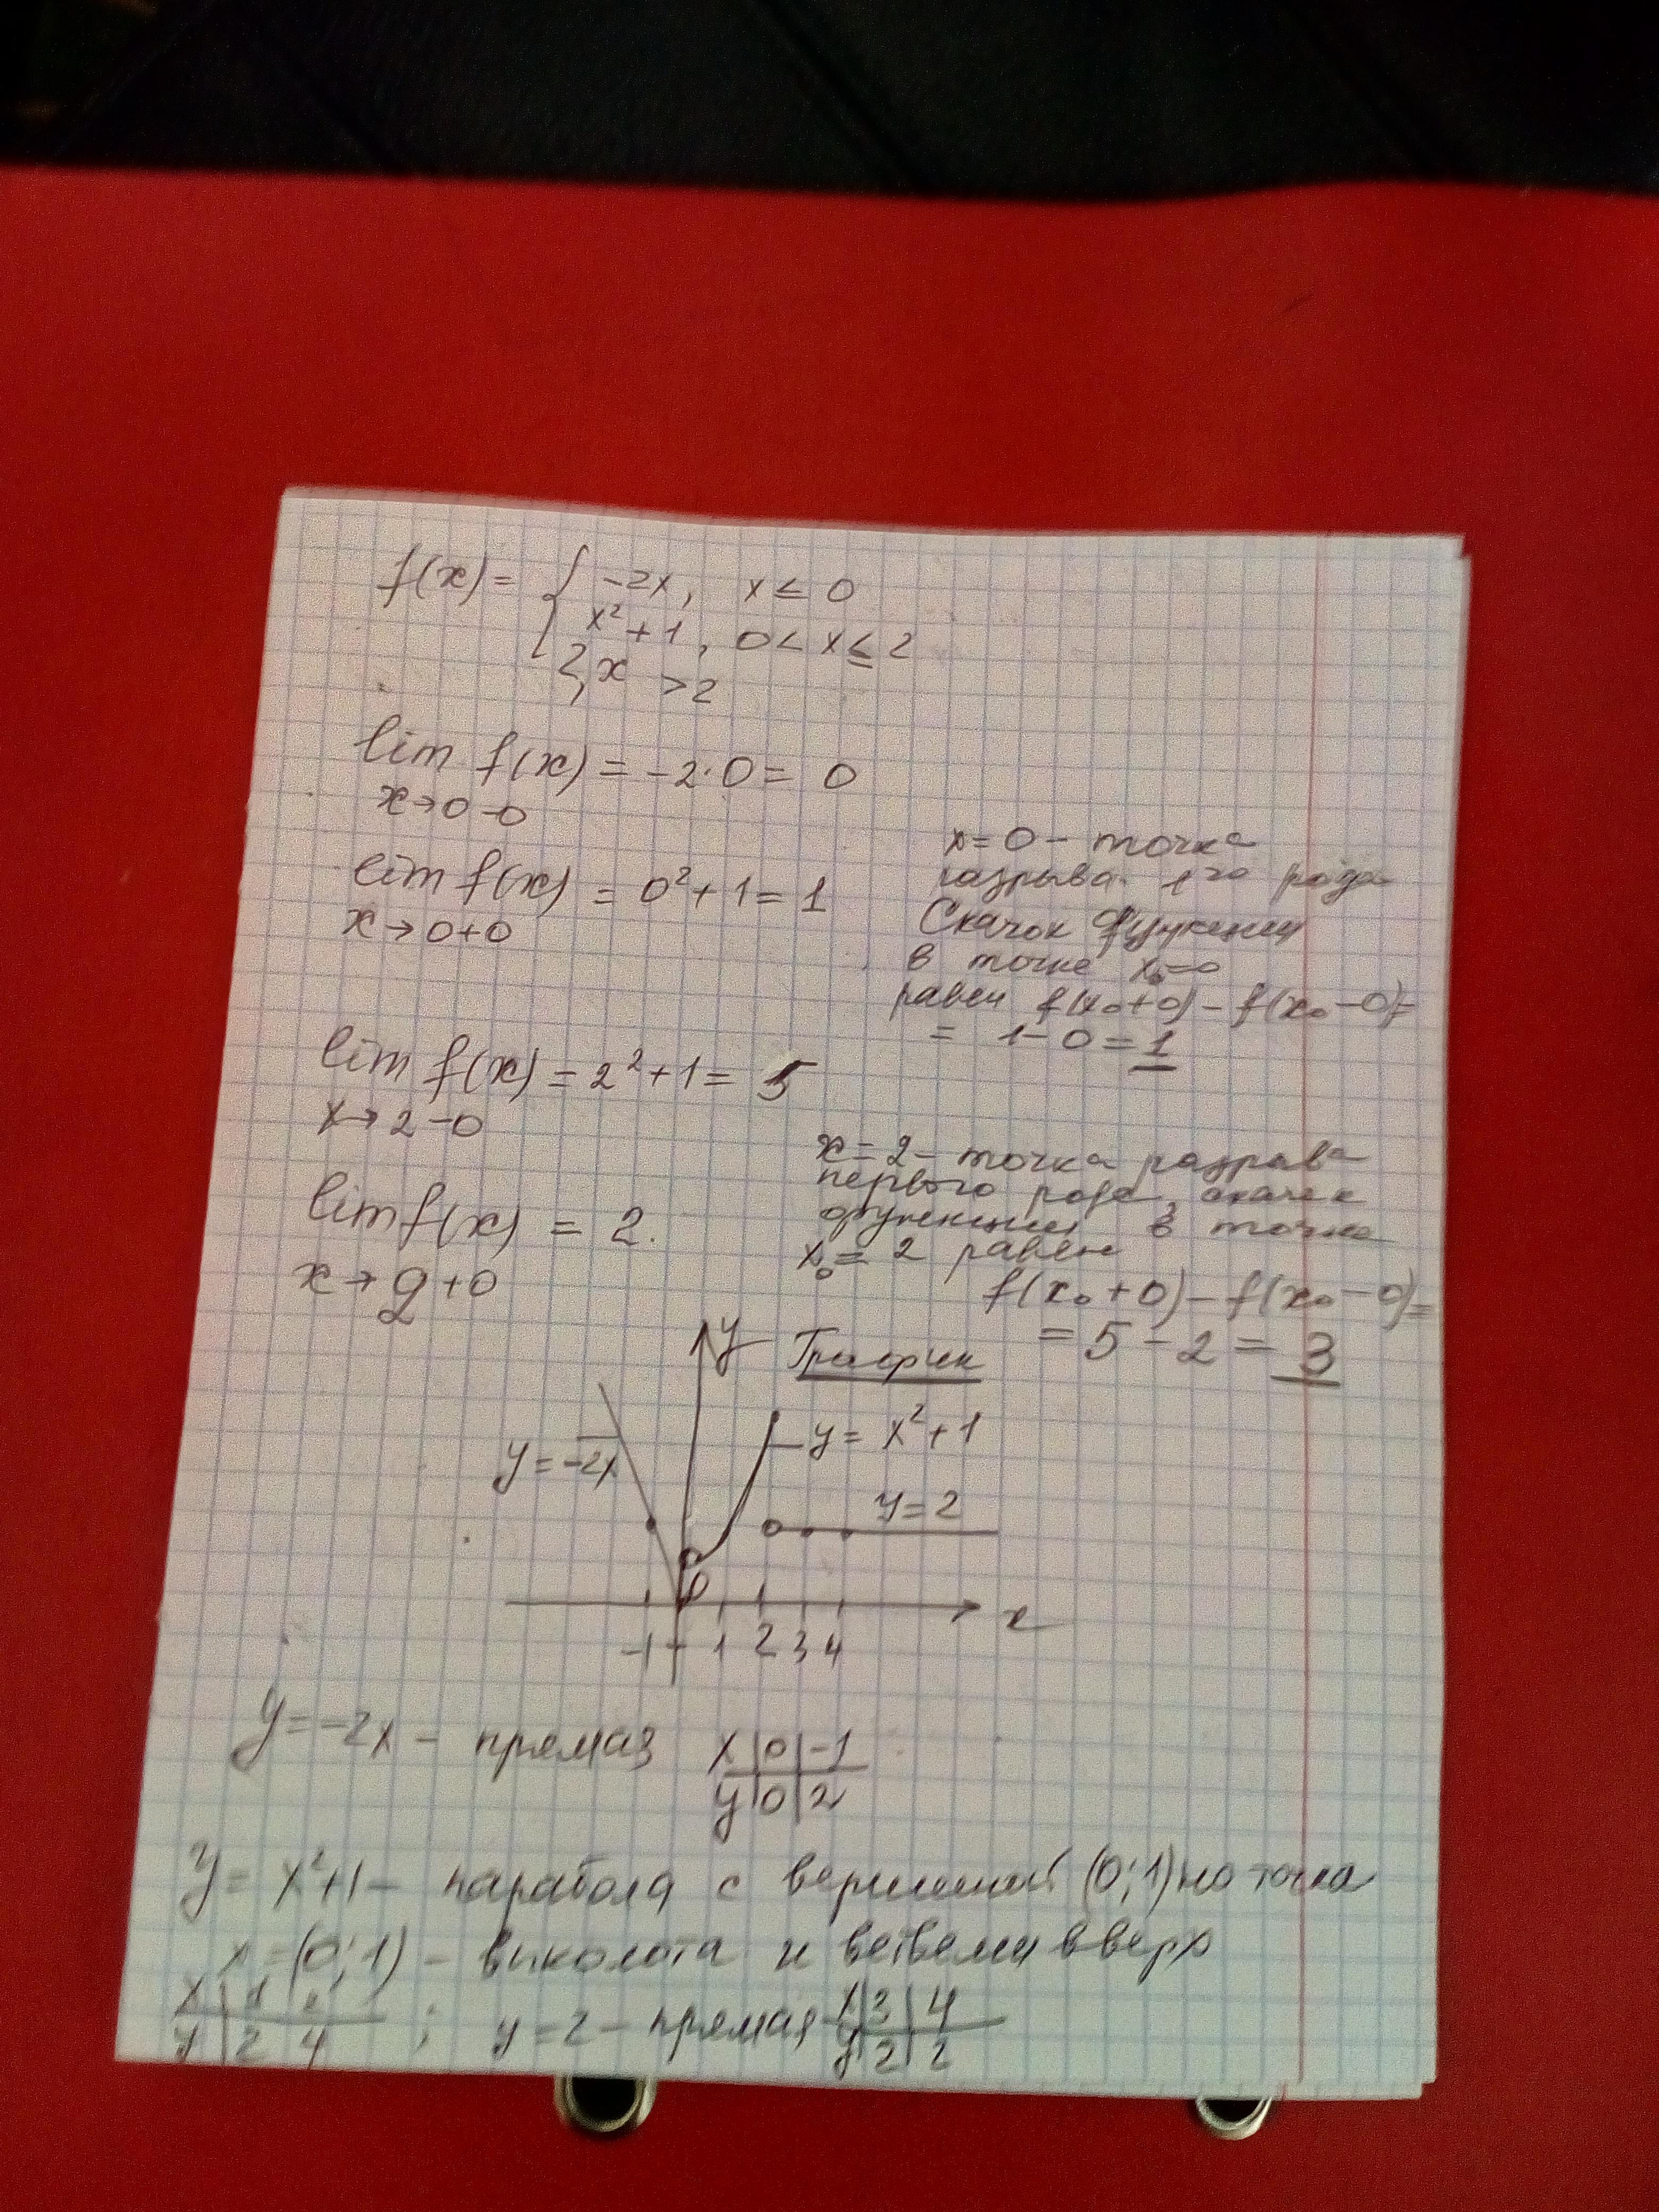 f(x) = { -2x, x ≤ 0
x² + 1, 0 < x ≤ 2
2, x > 2
lim f(x) = -2·0 = 0
x→0-0
x = 0 - точка
разрыва 1го рода
lim f(x) = 0² + 1 = 1
x→0+0
Скачок функции
в точке x₀=0
равен f(x₀+0) - f(x₀-0)=
= 1 - 0 = 1
lim f(x) = 2² + 1 = 5
x→2-0
x = 2 - точка разрыва
первого рода, скачек
функции в точке
x₀ = 2 равен
lim f(x) = 2.
x→2+0
f(x₀+0) - f(x₀-0)=
= 5 - 2 = 3
y График
y = x² + 1
y = -2x
y = 2
x
-1 1 2 3 4
y = -2x - прямая x | 0 | -1
y | 0 | 2
y = x²+1 - парабола с вершиной (0;1) но точка
x = (0;1) - выколота и ветвями вверх
x | 1 2
y | 2 4 ; y = 2 - прямая x | 3 | 4
y | 2 | 2